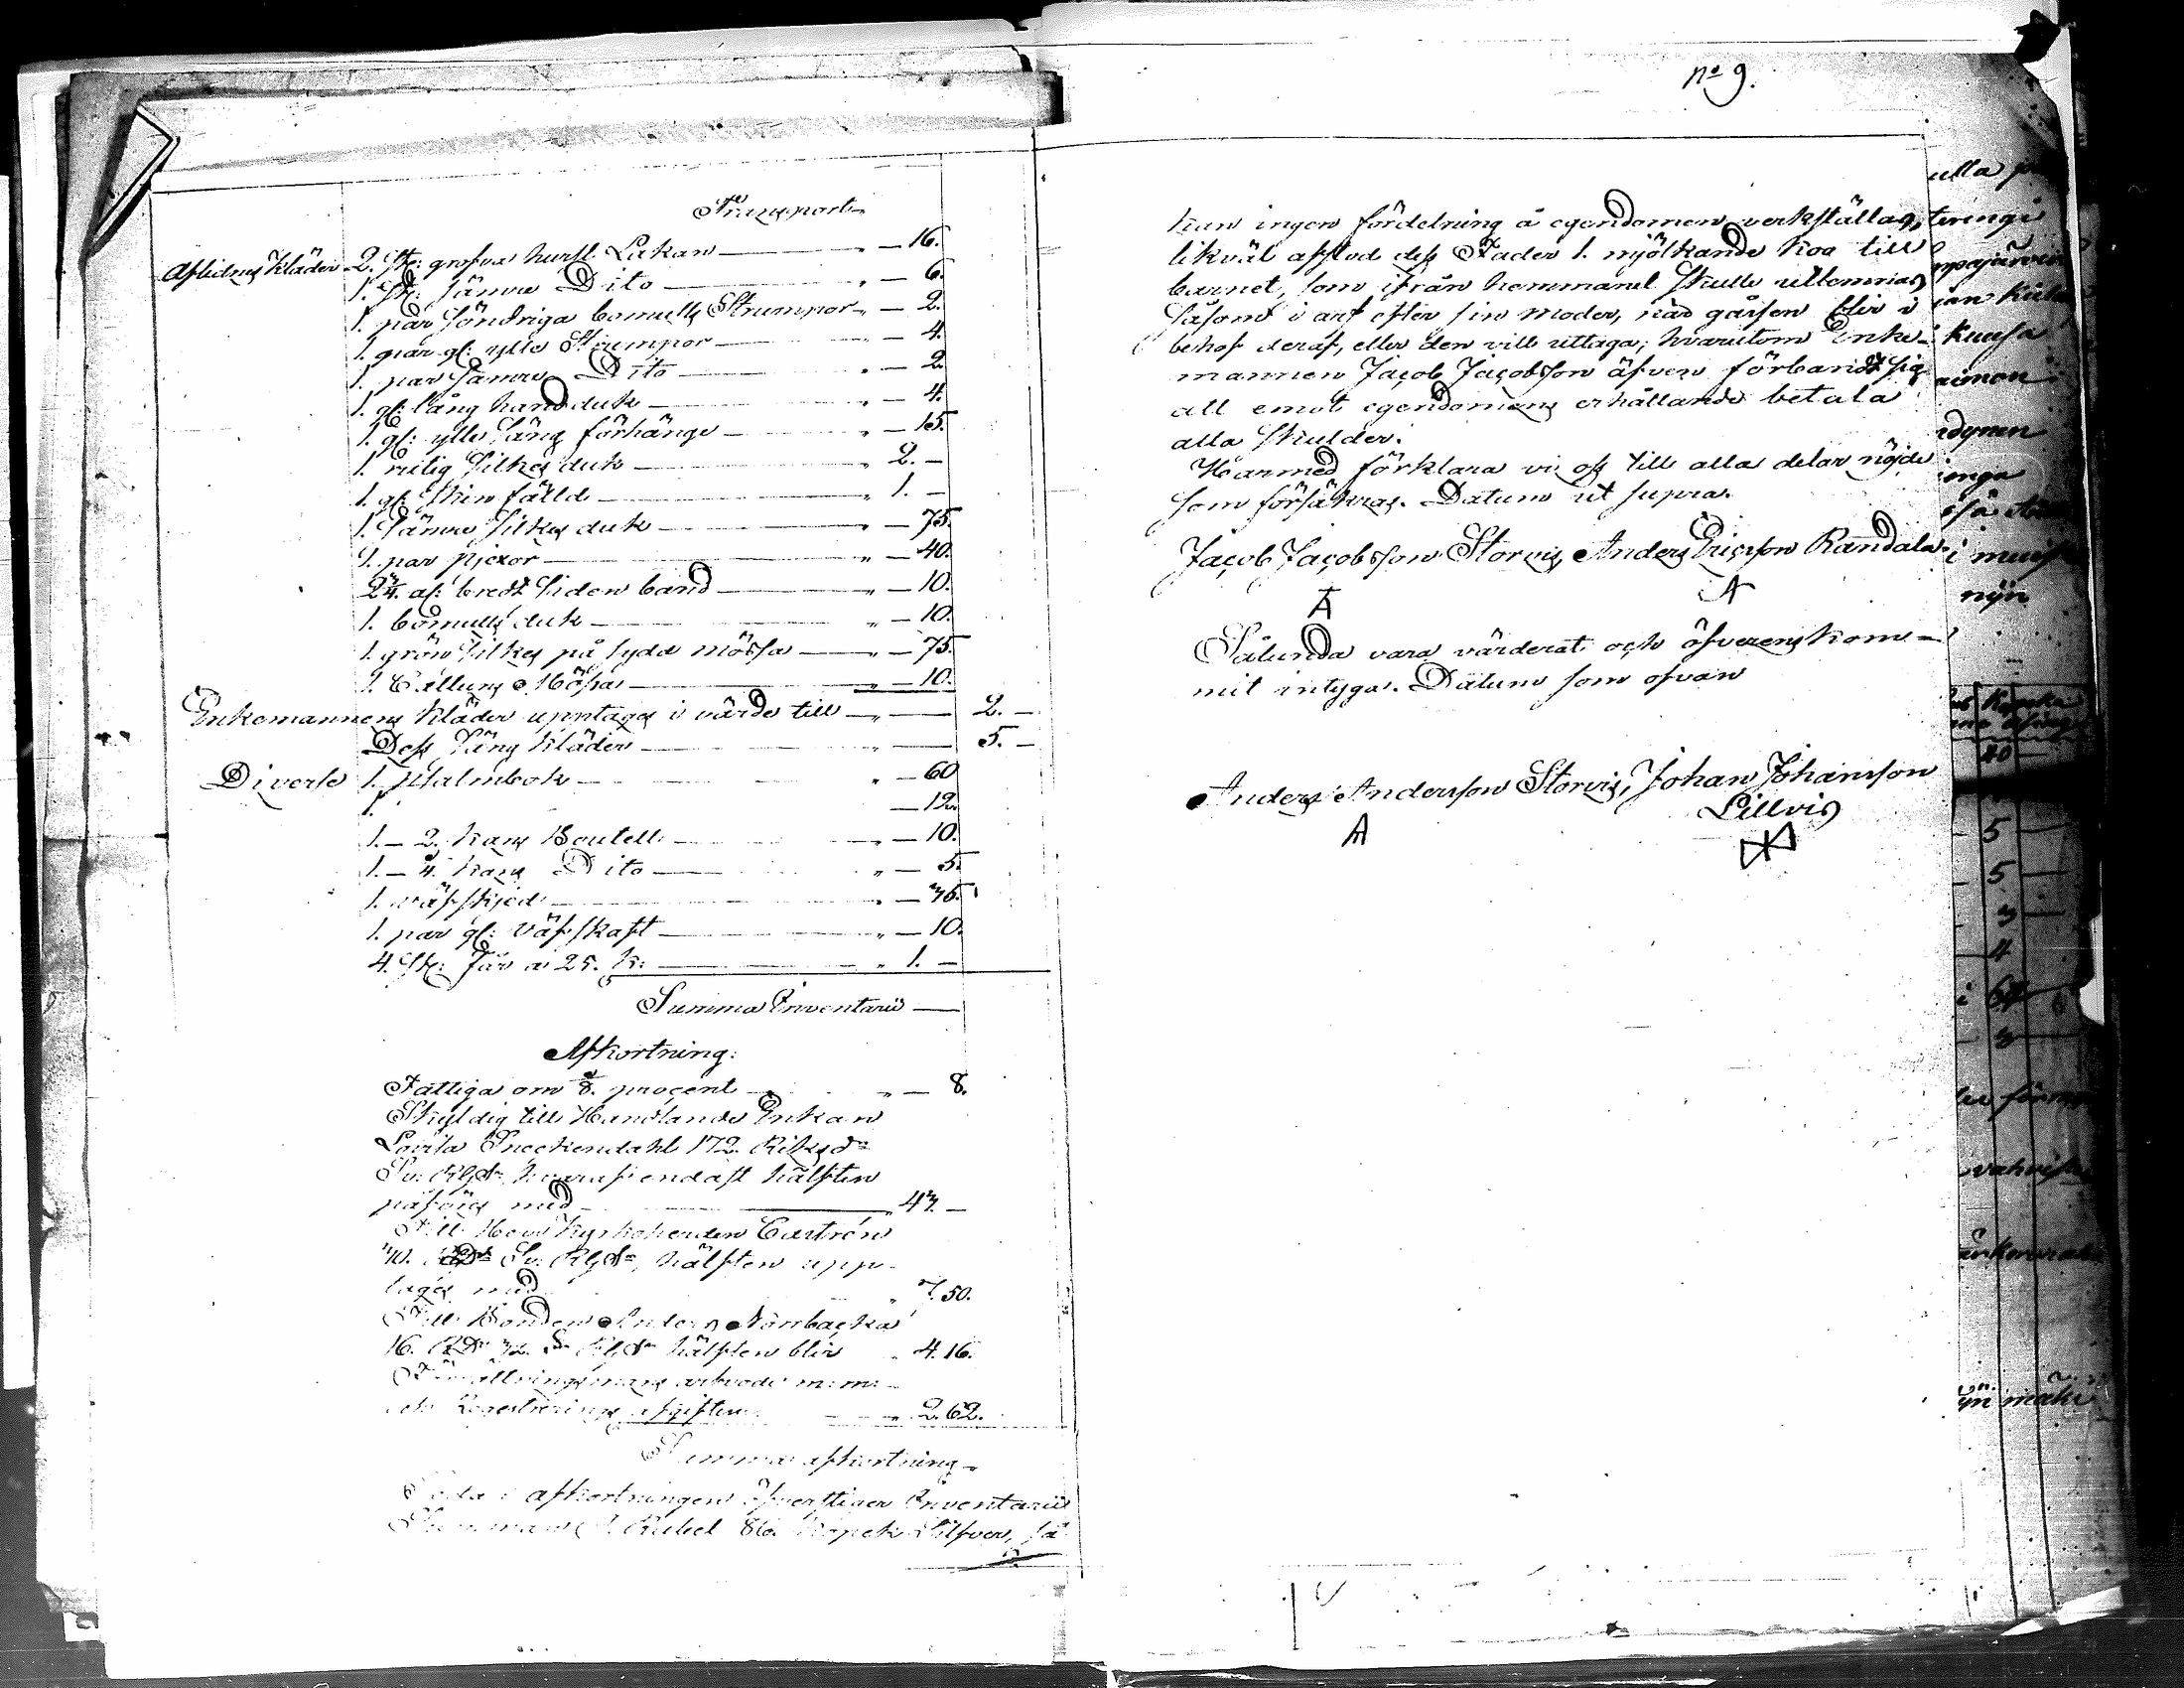 Transport
Aflidnes Kläder 2. st: grofva hursti Lakan " — 16.
1. st: sämre Dito " — 6.
1. par söndriga bomulls Strumpor " — 2.
1. par gl: ylle Strumpor — 4.
1. par sämre Dito " — 2
1. gl: lång handduk " — 4.
1. gl: ylle Säng förhänge " — 15.
1. rutig Silkes duk " 2. —
1. gl: skin fälld " 1. —
1. Sämre silkes duk " — 75.
1. par pjexor " — 40.
2 1/4. al: bredt Siden band " — 10.
1. bomulls duk " — 10.
1. grön silkes på sydd mössa " — 75.
1. Calluns Mössa " — 10.
Enkemannens Kläder upptages i värde till " — 2. —
Dess Säng Kläder " — 5. —
Diverse 1. Psalmbok " — 60
1. — 12.
1. — 2. kans Boutell " — 10.
1. — 4. kans Dito " — 5.
1. väfskjed " —
1. par gl: väfskaft " — 10.
4. st: Får a 25. k: " 1. —
Summa Inventarii —
Afkortning:
Fattiga om procent " — 8.
Skyldig till Handlande Enkan
Lovisa Sneckendahl 172. Riksdr
Sv: Rgds, hvaraf endast hälften
påföres med 47. —
Till Herr Kyrkoherden Castrén
Sv. Rgds, hälften upp-
tages med 7. 50.
Till Bonden Anders Nörrbacka
16. Rdr Rgds hälften blir 4. 16.
arbvode m: m:
Registrerings afgiften " 2. 62.
Summa afkortning
afkortningen öfverstiger Inventarii
Summan Rubel 86. Kopek Silfver, så
no 9.
kan ingen fördelning å egendomen verkställas,
likväl afstod dess Fader 1. mjölkande koa till
barnet, som ifrån hemmanet skulle utlemnas
såsom i arf efter sin moder, när gåssen blir i
behof deraf, eller den vill uttaga; hvarutom Enke-
mannen Jacob Jacobsson äfven förbandt sig
att emot egendomens erhållande betala
alla skulder.
Härmed förklara vi oss till alla delar nöjde
som försäkras. Datum ut supra.
Jacob Jacobsson Storvis, Anders Ericsson Randala
A A
Sålunda vara värderat och öfverenskom-
mit intygar. Datum som ofvan
Anders Andersson Storvis, Johan Johansson
Lillvis
A
ulla
teringi
kuusa
dynen
inga
nijn
40
5
5
4